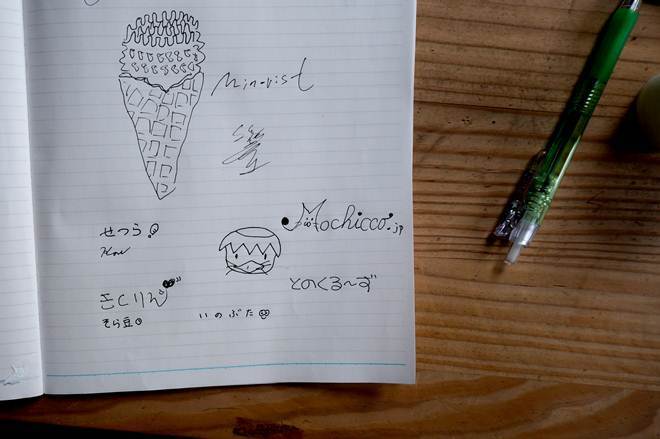 Minorist
せつら
Mochicco.jp
とのくる〜ず
きくりん
そら豆
いのぶた